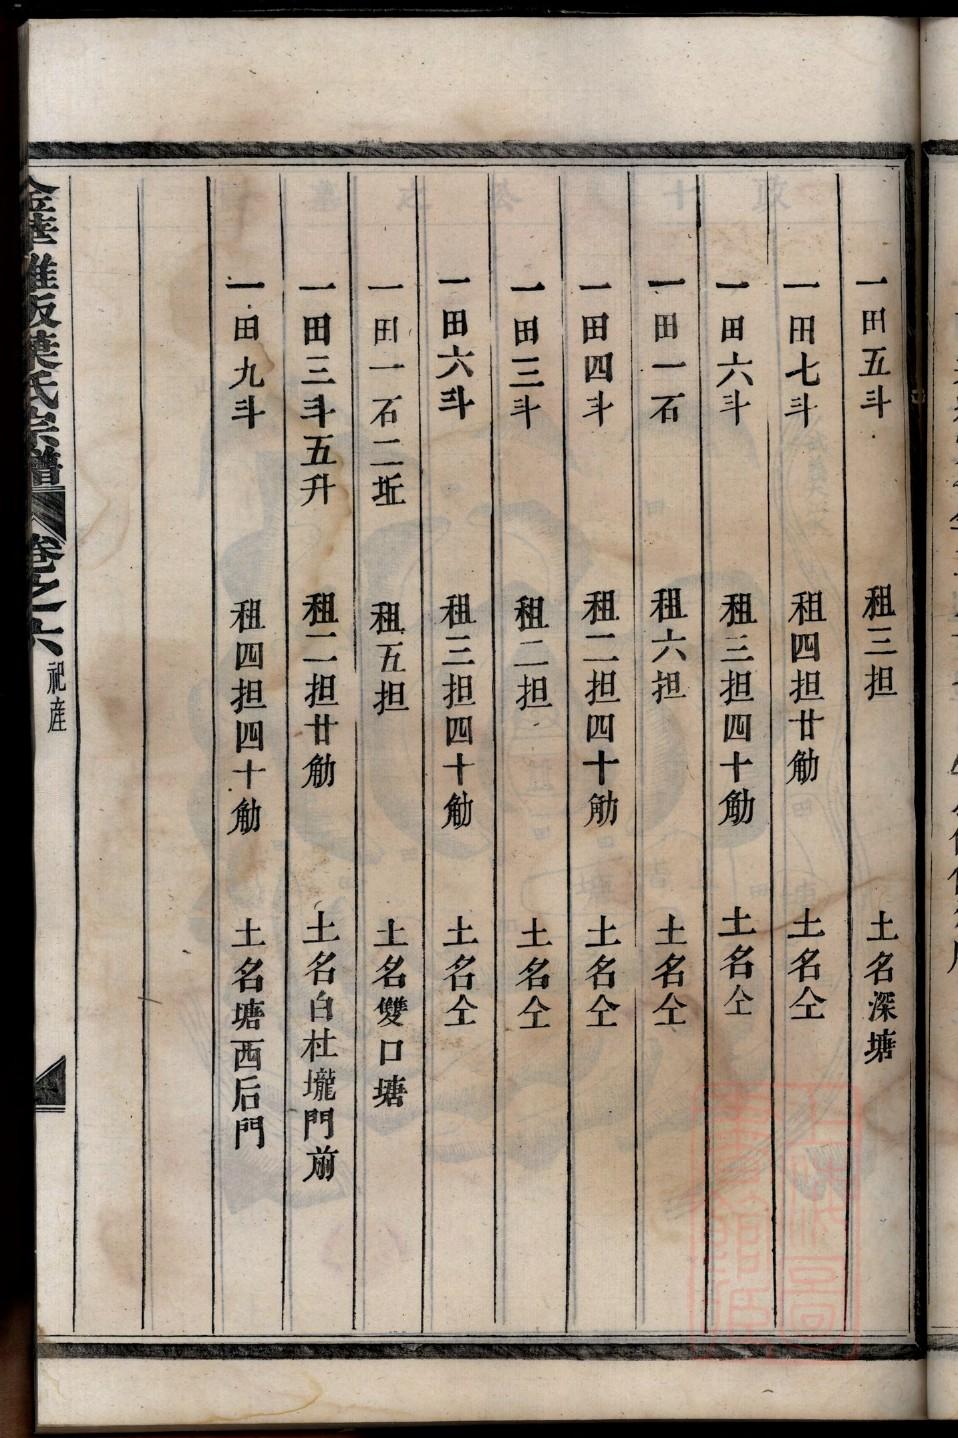 一田五斗　租三担　土名深塘
一田七斗　租四担廿觔　土名仝
一田六斗　租三担四十觔　土名仝
一田一石　租六担　土名仝
一田四斗　租二担四十觔　土名仝
一田三斗　租二担　土名仝
一田六斗　租三担四十觔　土名仝
一田一石二坵　租五担　土名雙口塘
一田三斗五升　租二担廿觔　土名白杜壠門前
一田九斗　租四担四十觔　土名塘西后門
金華雅畈葉氏宗譜　卷之六　祀産